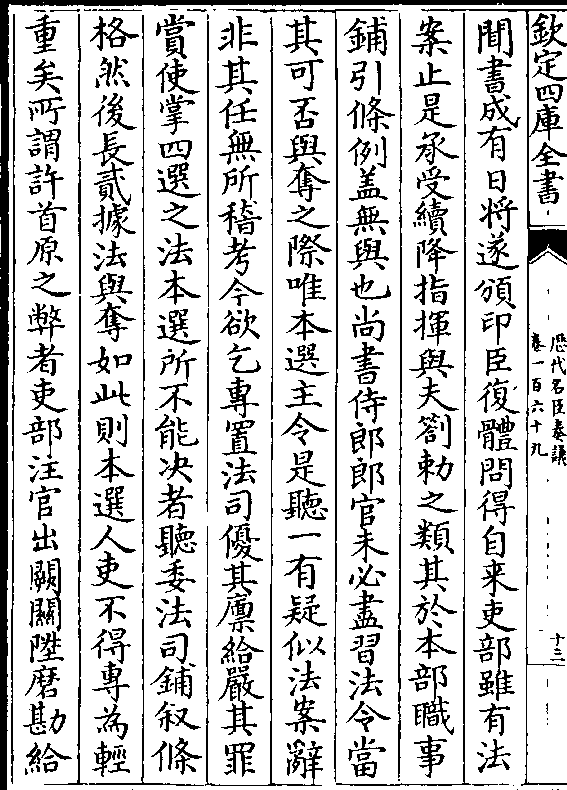 欽定四庫全書
歷代名臣奏議
卷一百六十九
十三
聞書成有日将遂頒印臣復體問得自来吏部雖有法
案止是承受續降指揮與夫劄勅之類其於本部職事
鋪引條例盖無與也尚書侍郎郎官未必盡習法令當
其可否與奪之際唯本選主令是聽一有疑似法案辭
非其任無所稽考今欲乞專置法司優其廪給嚴其罪
賞使掌四選之法本選所不能決者聽委法司鋪叙條
格然後長貳據法與奪如此則本選人吏不得專為輕
重矣所謂許首原之弊者吏部注官出闕關陞磨勘給